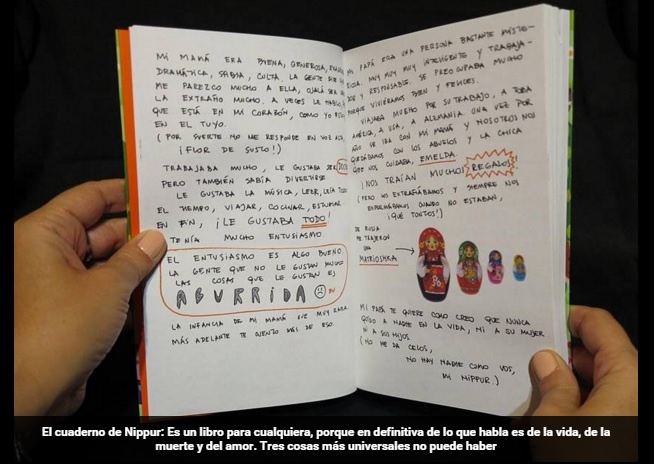 MI MAMÁ ERA BUENA, GENEROSA,
DRAMÁTICA, SABIA, CULTA. LA GENTE DICE QUE
ME PAREZCO MUCHO A ELLA, OJALÁ SEA
LA EXTRAÑO MUCHO. A VECES LE HABLO,
QUE ESTÁ EN MI CORAZÓN, COMO YO
EN EL TUYO.
(POR SUERTE NO ME RESPONDE EN VOZ ALTA,
¡FLOR DE SUSTO!)
TRABAJABA MUCHO, LE GUSTABA SER
PERO TAMBIÉN SABÍA DIVERTIRSE
LE GUSTABA LA MÚSICA, LEER, LEÍA TODO
EL TIEMPO, VIAJAR, COCINAR, ESTUDIAR
EN FIN, ¡LE GUSTABA TODO!
TENÍA MUCHO ENTUSIASMO
EL ENTUSIASMO ES ALGO BUENO
LA GENTE QUE NO LE GUSTAN MUCHO
LAS COSAS QUE LE GUSTAN ES
ABURRIDA
LA INFANCIA DE MI MAMÁ FUE MUY RARA
MÁS ADELANTE TE CUENTO MÁS DE ESO.
MI PAPÁ ERA UNA PERSONA BASTANTE MISTE-
RIOSA. MUY MUY MUY INTELIGENTE Y TRABAJA-
DOR Y RESPONSABLE. SE PREOCUPABA MUCHO
PORQUE VIVIÉRAMOS BIEN Y FELICES.
VIAJABA MUCHO POR SU TRABAJO, A TODA
AMÉRICA, A USA, A ALEMANIA. UNA VEZ POR
AÑO SE IBA CON MI MAMÁ Y NOSOTROS NOS
QUEDÁBAMOS CON LOS ABUELOS Y LA CHICA
QUE NOS CUIDABA, EMELDA.
¡NOS TRAÍAN MUCHOS REGALOS!
(PERO LOS EXTRAÑÁBAMOS Y SIEMPRE NOS
ENFERMÁBAMOS CUANDO NO ESTABAN,
¡QUÉ TONTOS!)
DE RUSIA
ME TRAJERON
UNA
MATRIOSHKA
MI PAPÁ TE QUIERE COMO CREO QUE NUNCA
QUISO A NADIE EN LA VIDA, NI A SU MUJER
NI A SUS HIJOS
(NO ME DA CELOS,
NO HAY NADIE COMO VOS,
MI NIPPUR.)
El cuaderno de Nippur: Es un libro para cualquiera, porque en definitiva de lo que habla es de la vida, de la
muerte y del amor. Tres cosas más universales no puede haber